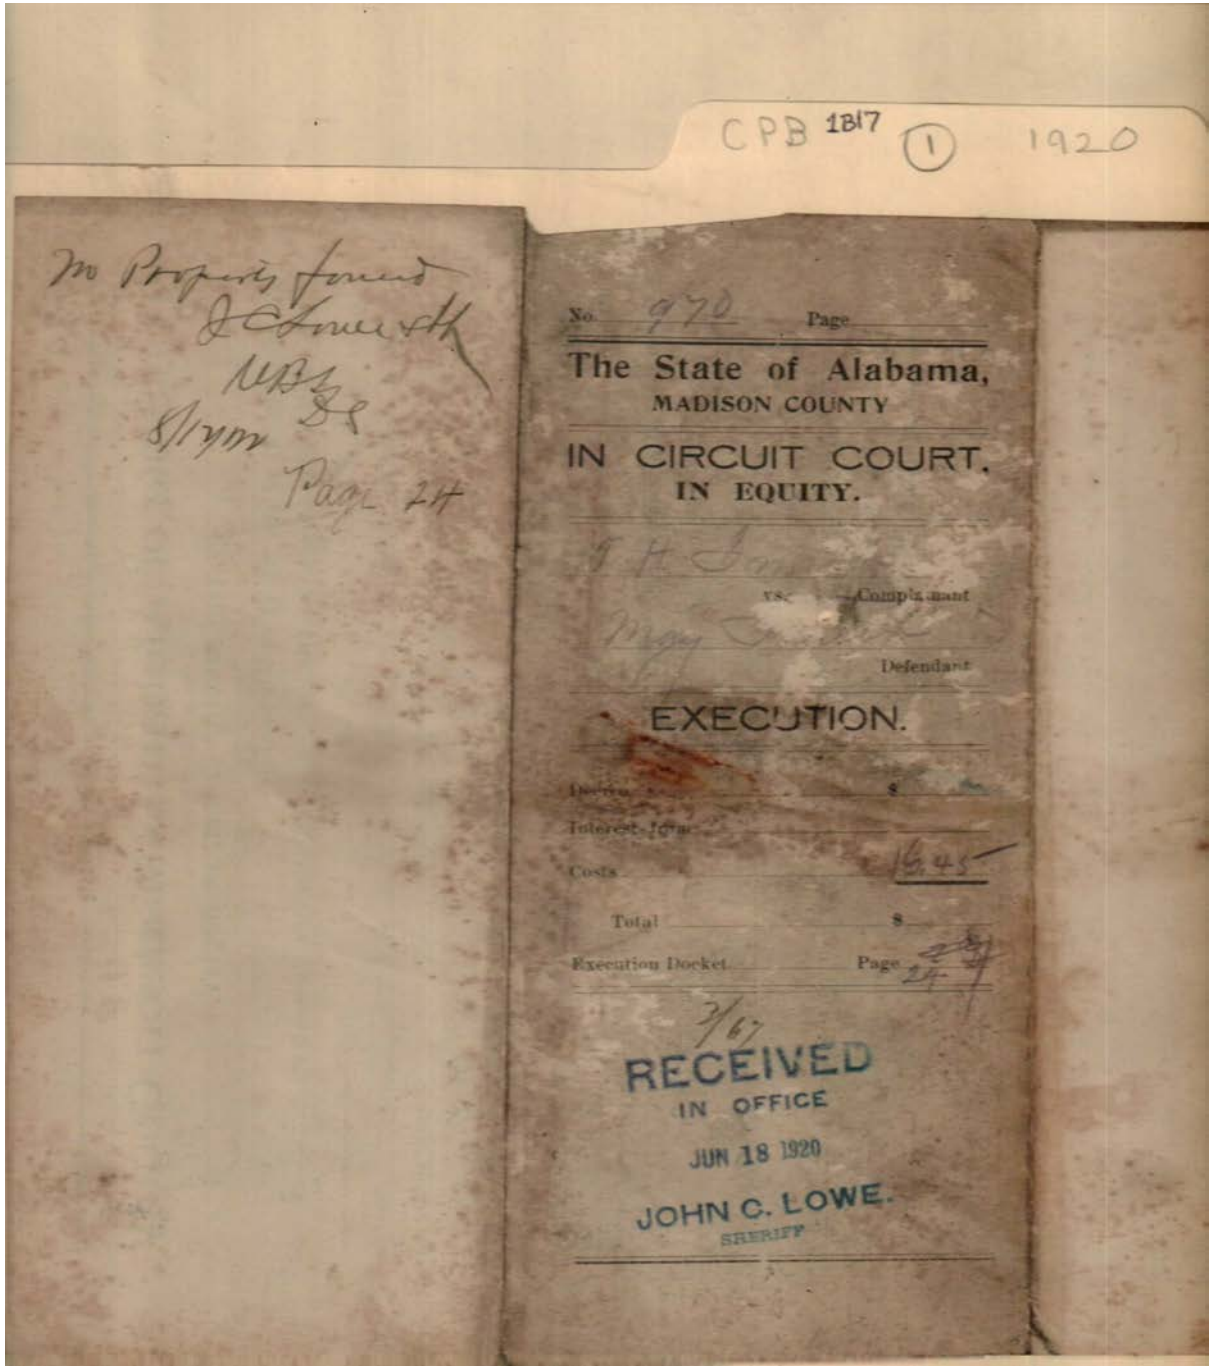 CPB 1B17 1 1920
No Property found
J C Lowe Shff
DS
Page 24
No. 970 Page
The State of Alabama,
MADISON COUNTY
IN CIRCUIT COURT,
IN EQUITY.
T H
vs. Complainant
Defendant
EXECUTION.
Decree $
Interest from
Costs 16.45
Total $
Execution Docket Page 24
RECEIVED
IN OFFICE
JUN 18 1920
JOHN C. LOWE.
SHERIFF